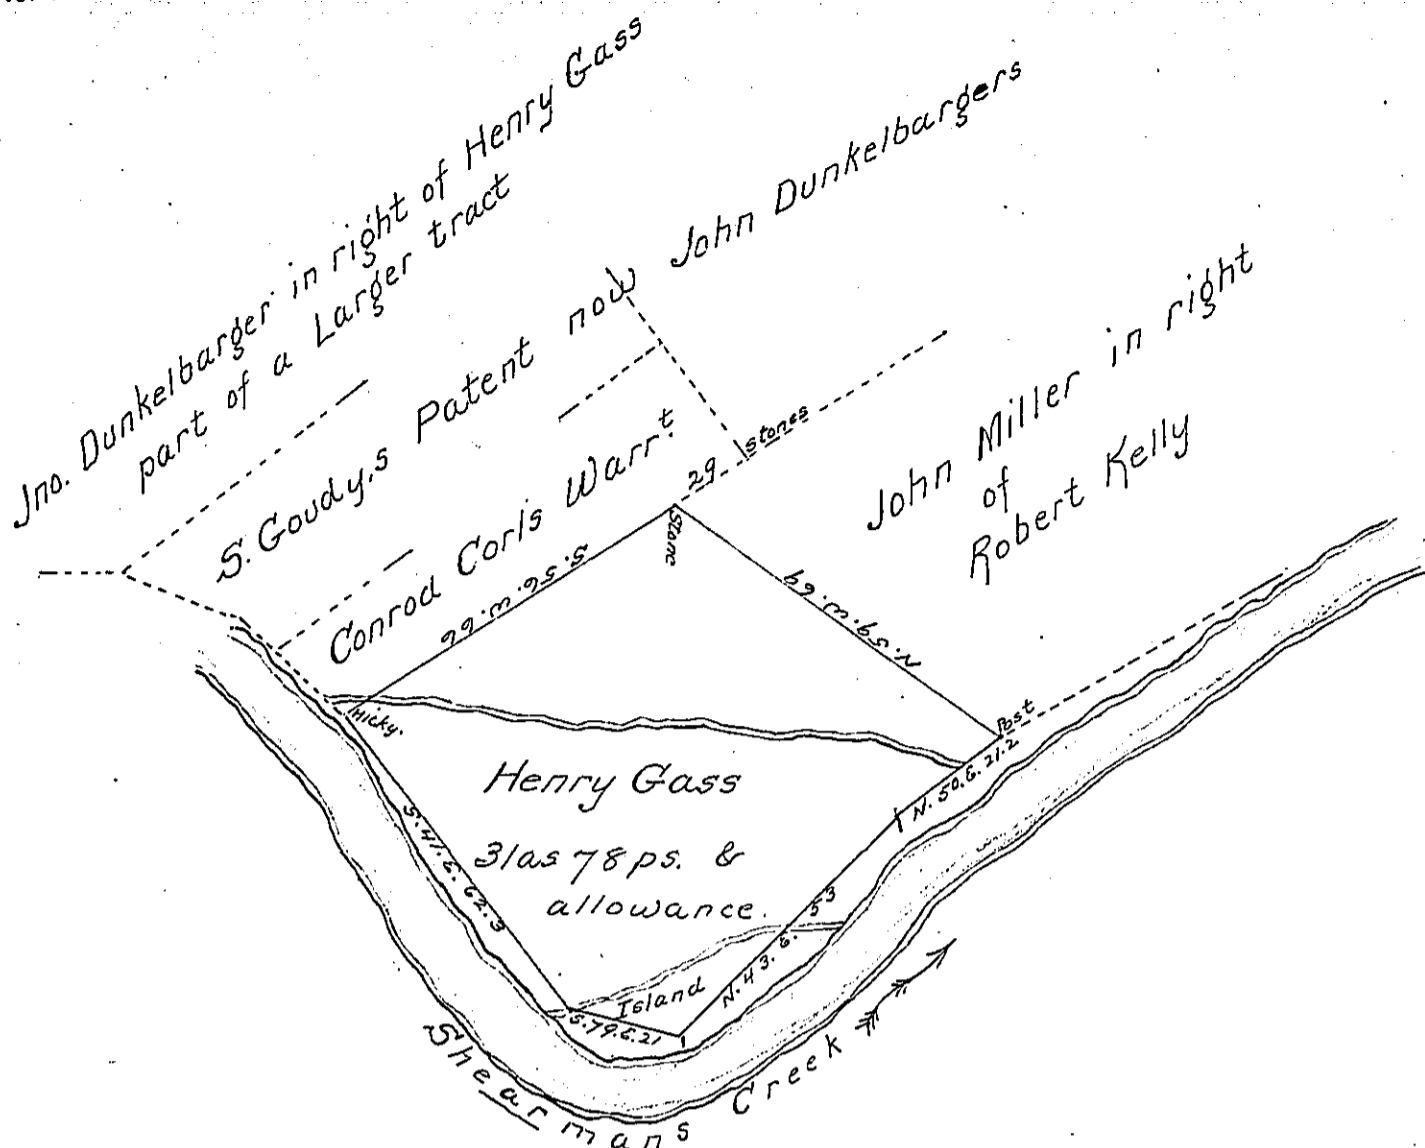 Jno. Dunkelbarger in right of Henry Gass
part of a Larger tract
S. Goudy,s Patent now John Dunkelbargers
Conrod Corls Warrt.
29
stones
Stone
John Miller in right
of
Robert Kelly
S. 56. W. 66
N. 59. W. 69
Hicky.
Post
N. 50. E. 21.2
Henry Gass
31as 78ps. &
allowance.
S. 41. E. 62.3
N. 43. E. 53
Island
S. 79. E. 21
Shearmans Creek